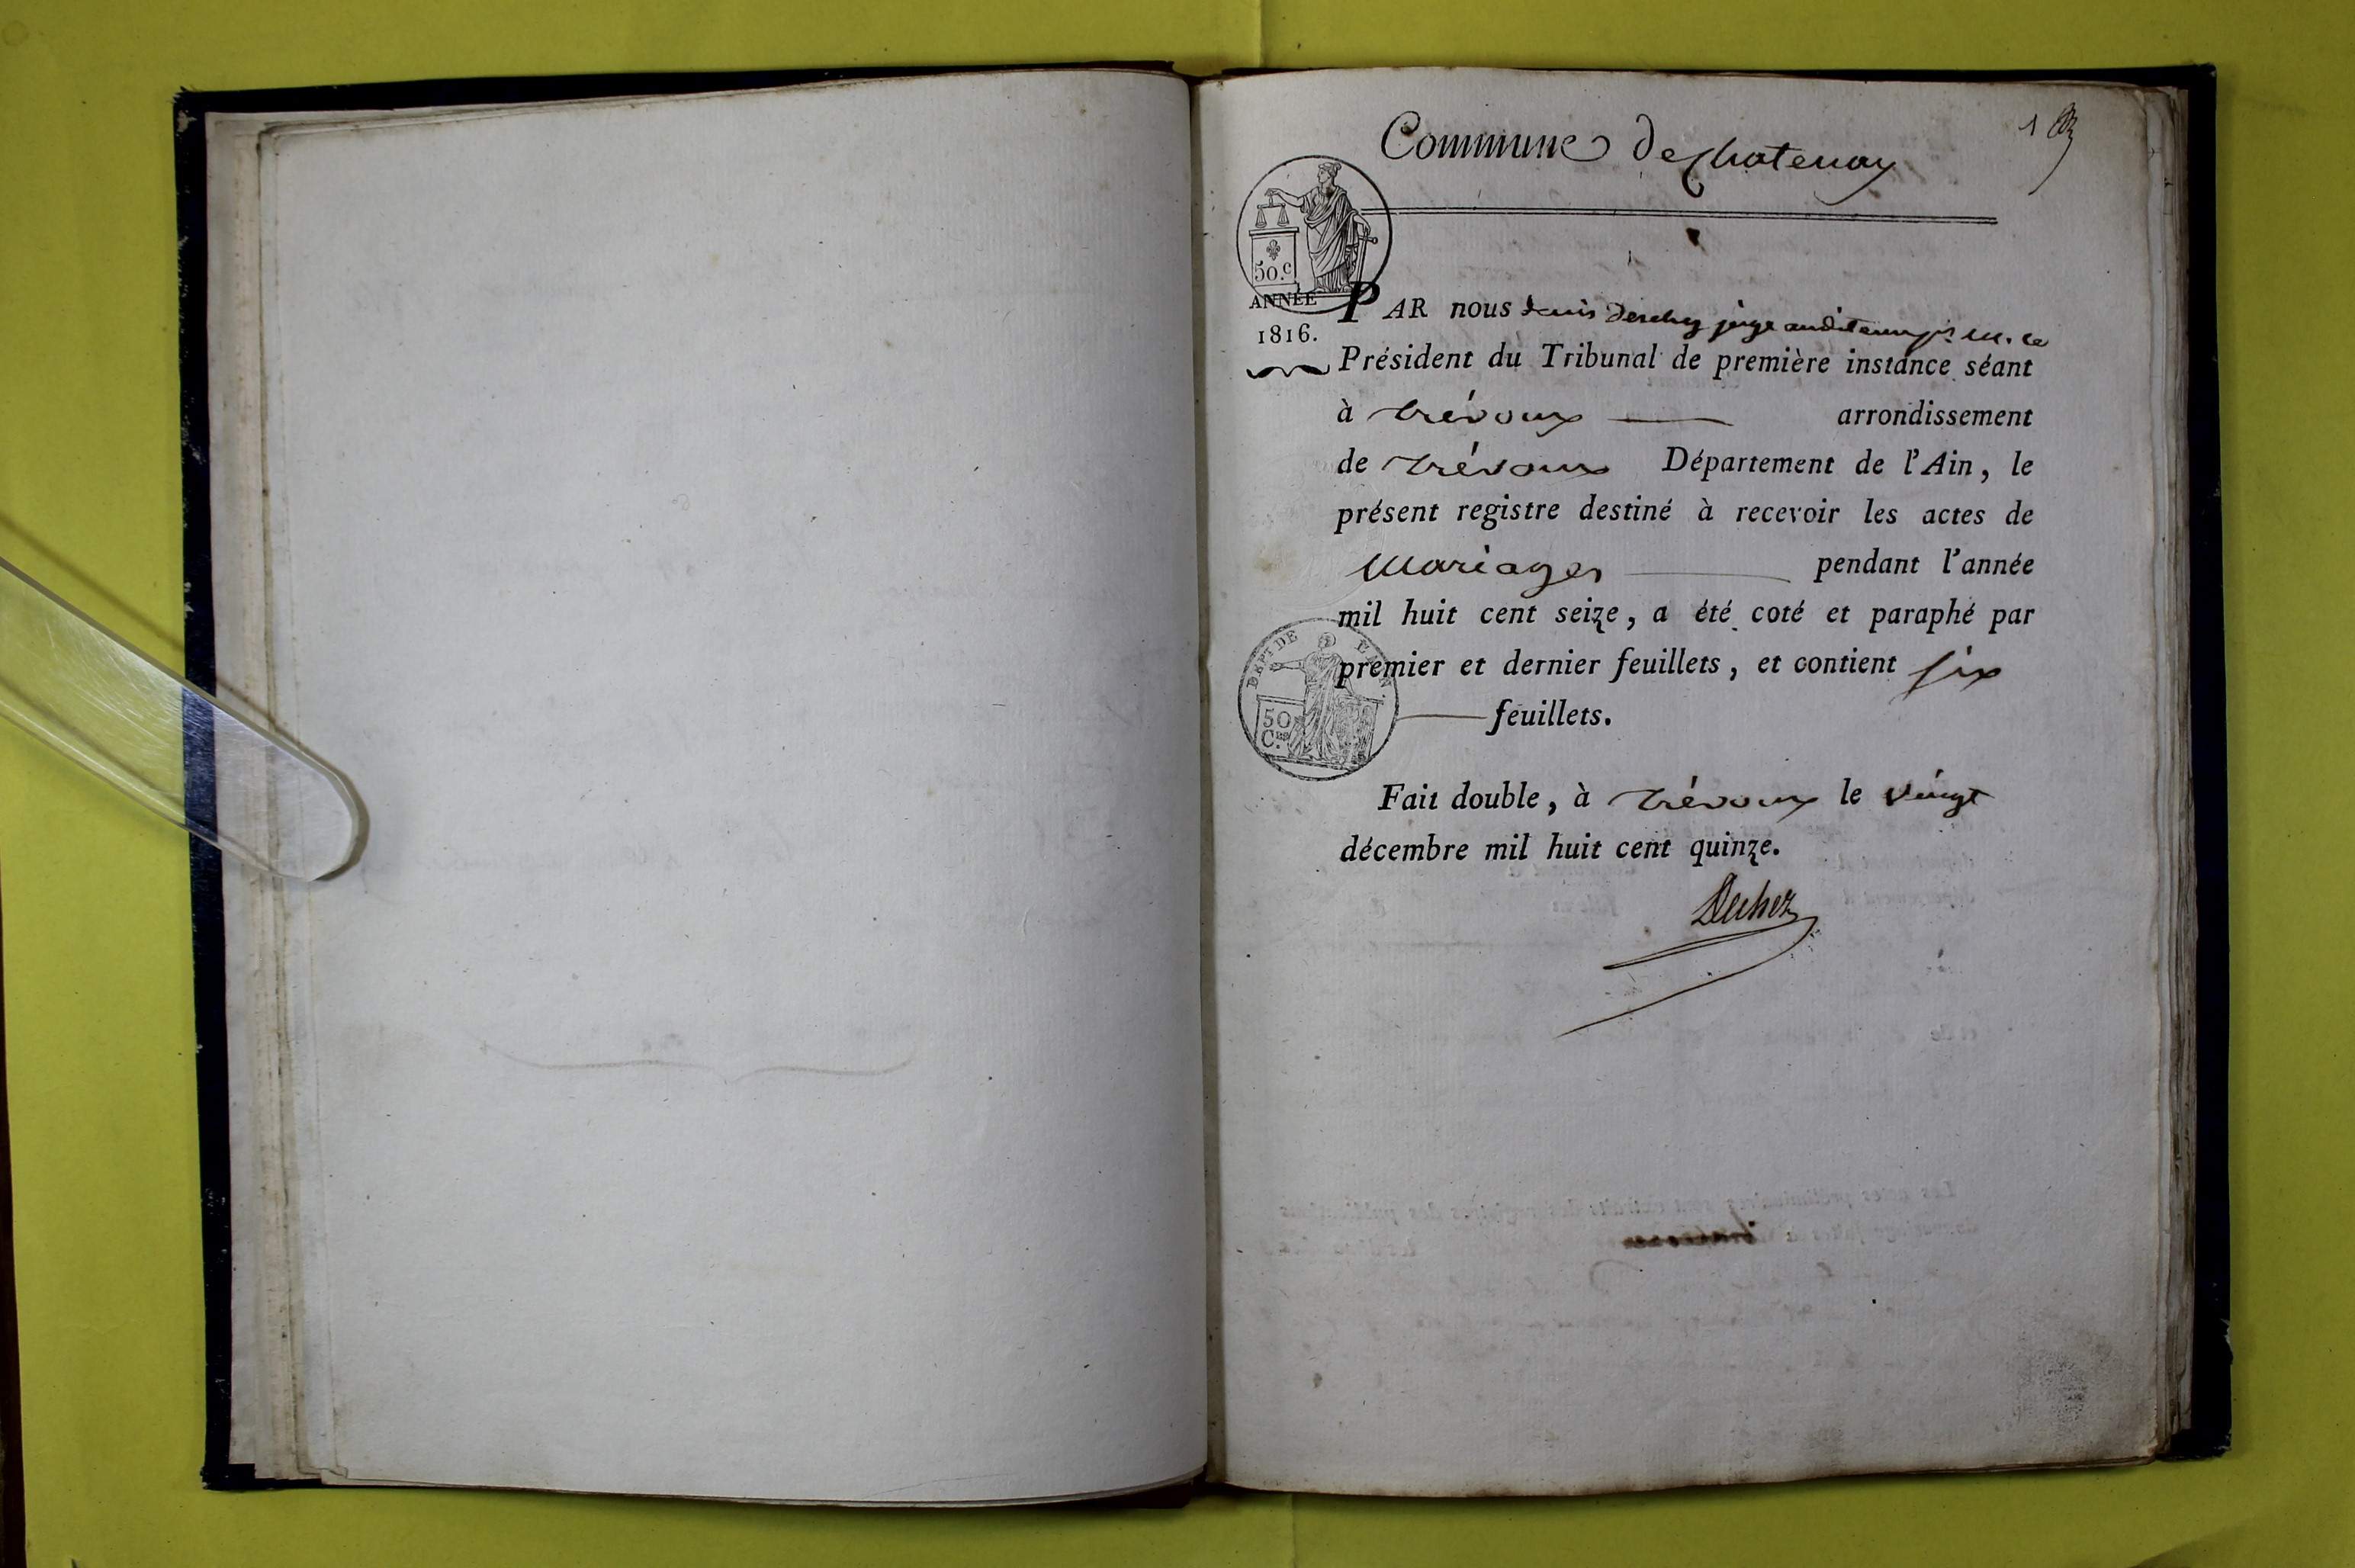 1
Commune de chatenay
50.c
ANNÉE
1816.
PAR nous denis deschez juge auditeur pr. M. le
Président du Tribunal de première instance séant
à trévoux arrondissement
de trévoux Département de l'Ain, le
présent registre destiné à recevoir les actes de
Mariages pendant l'année
mil huit cent seize, a été coté et paraphé par
premier et dernier feuillets, et contient six
feuillets.
DEPT DE L'AIN.
50
C.es
Fait double, à trévoux le vingt
décembre mil huit cent quinze.